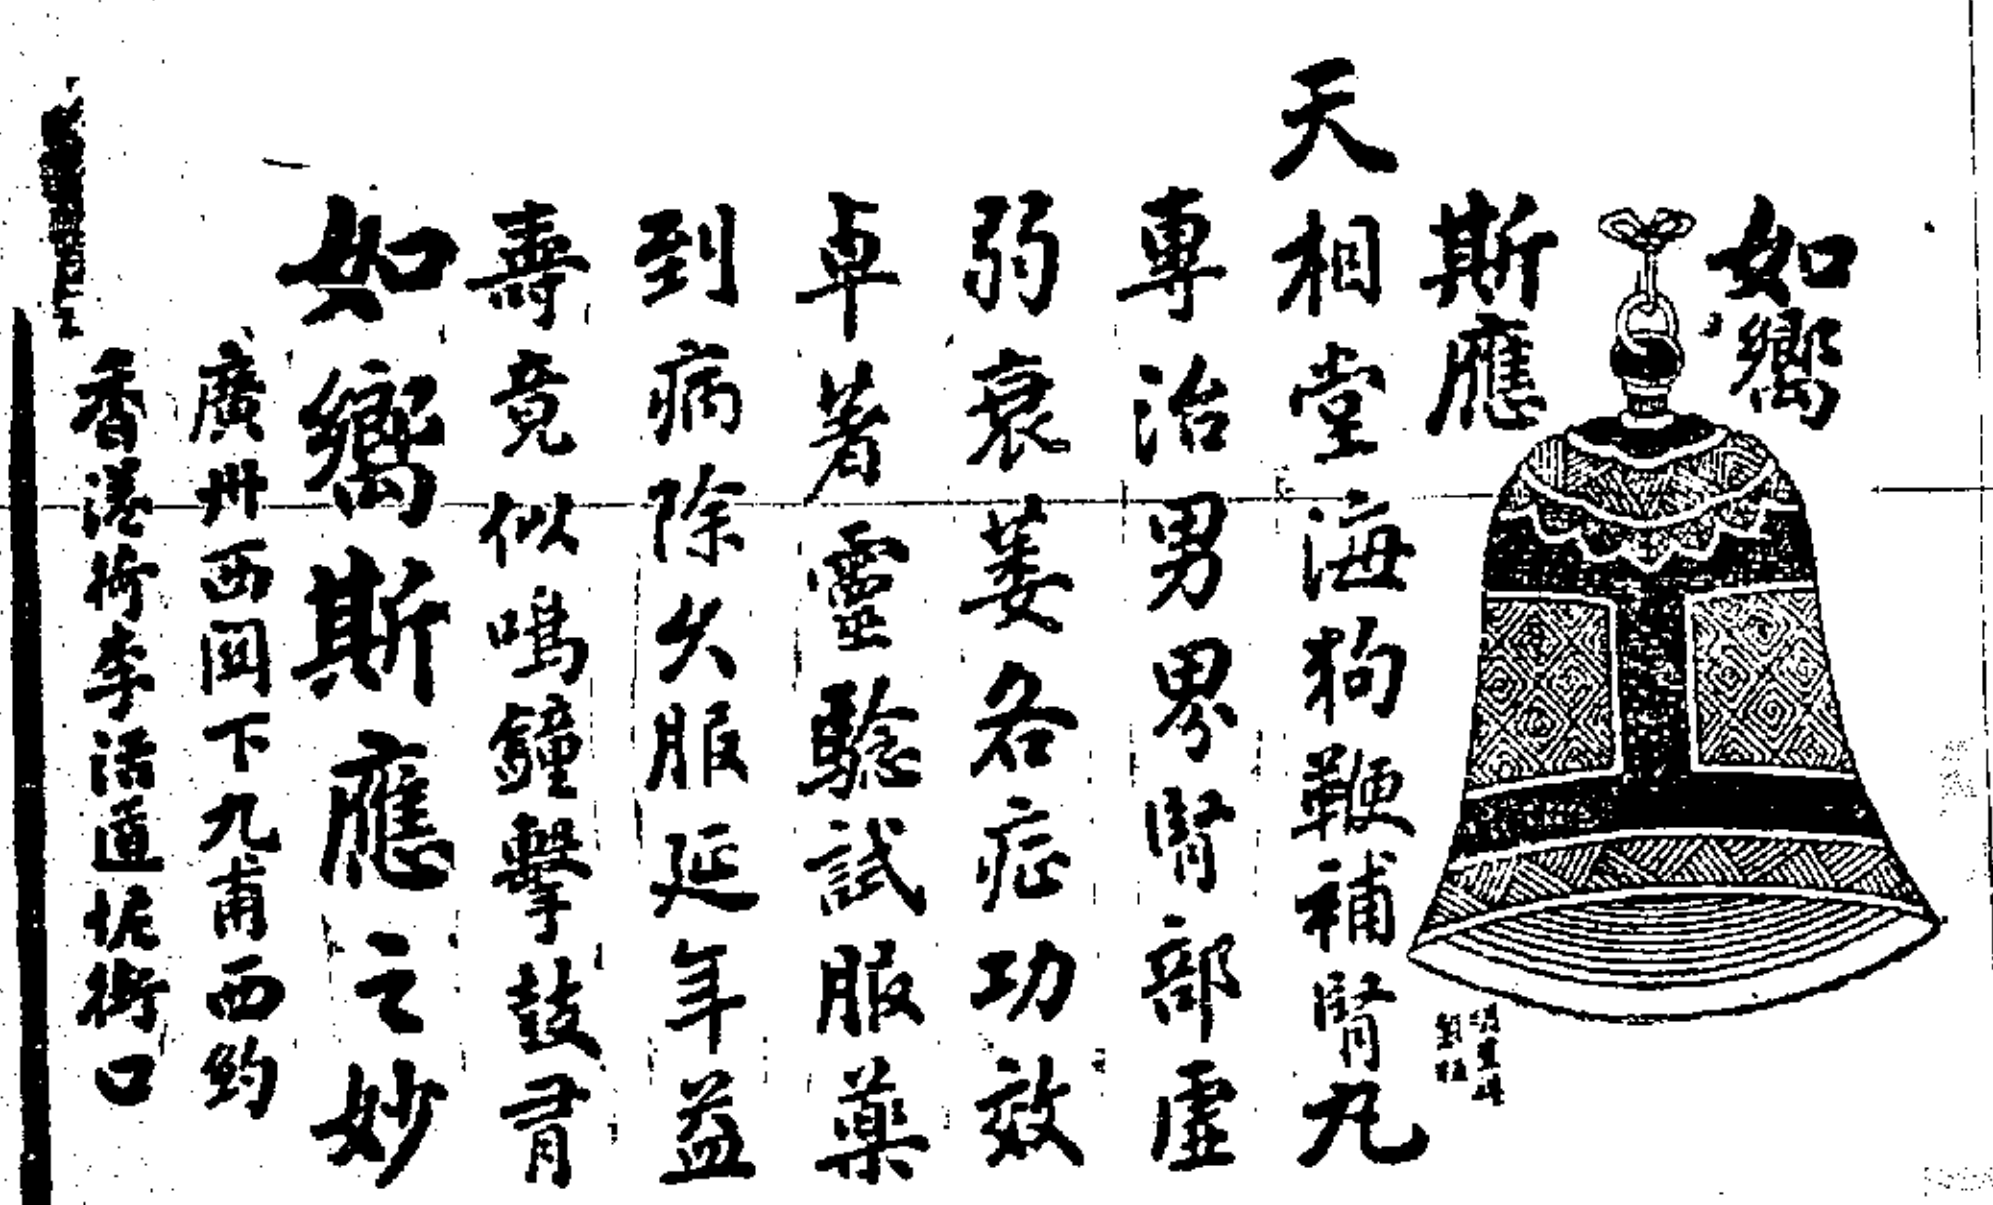 如響
斯應
天相堂海狗鞭補腎丸
專治男界腎部虛
弱衰萎各症功效
卓著靈驗試服藥
到病除久服延年益
壽竟似鳴鐘擊鼓有
如響斯應之妙
廣州西關下九甫西約
香港荷李活道坭街口